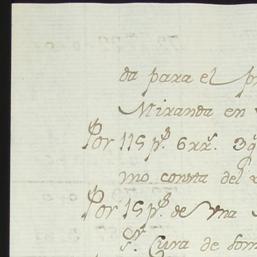 da para el
Miranda en
Por 115 p.s 6 rr.s
mo consta del
Por 15 p.s de una
S.r Cura de